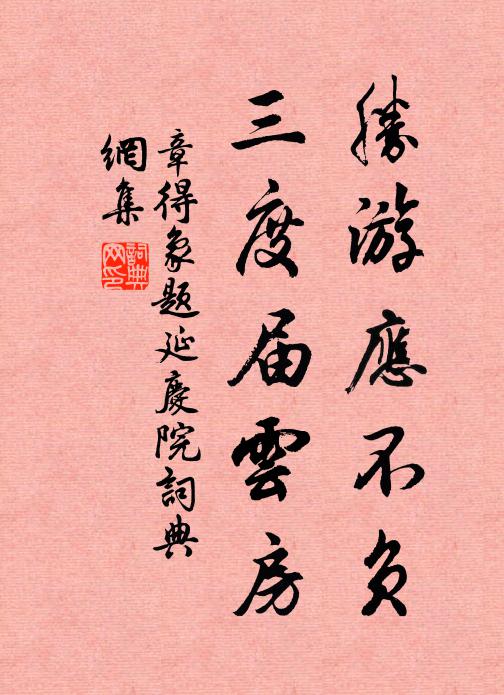 勝游應不負
三度届雲房
章得象題延慶院詞典
網集
詞典網印